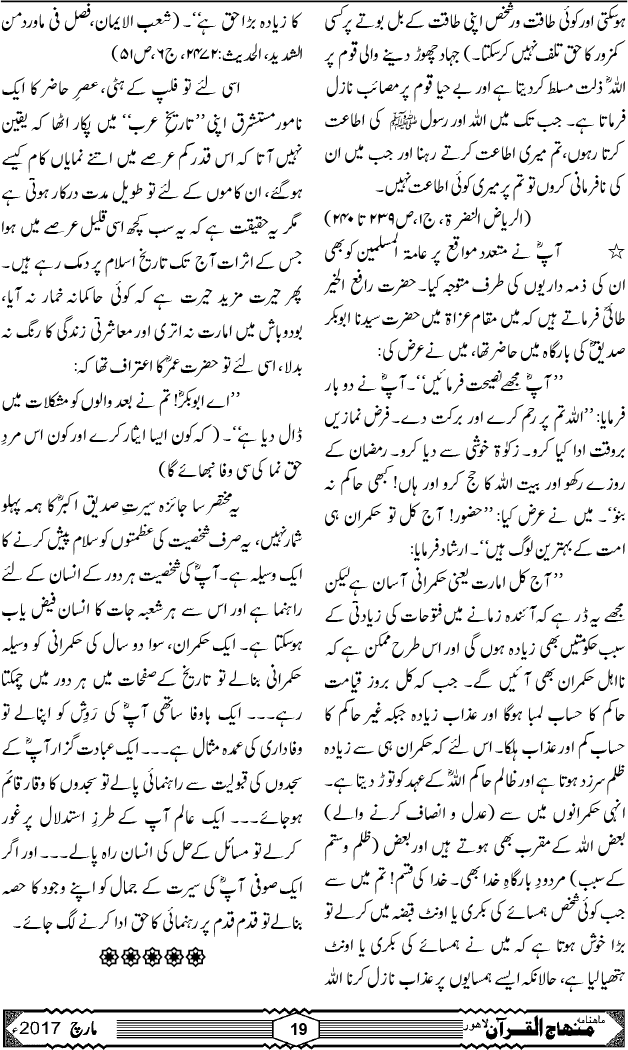 ہوسکتی اور کوئی طاقت ور شخص اپنی طاقت کے بل بوتے پر کسی
کمزور کا حق تلف نہیں کرسکتا۔) جہاد چھوڑ دینے والی قوم پر
اللہ ذلت مسلط کردیتا ہے اور بے حیا قوم پر مصائب نازل
فرماتا ہے۔ جب تک میں اللہ اور رسول ﷺ کی اطاعت
کرتا رہوں، تم میری اطاعت کرتے رہنا اور جب میں ان
کی نافرمانی کروں تو تم پر میری کوئی اطاعت نہیں۔
(الریاض النضرۃ، ج۱، ص۲۳۹ تا ۲۴۰)
☆ آپؓ نے متعدد مواقع پر عامۃ المسلمین کو بھی
ان کی ذمہ داریوں کی طرف متوجہ کیا۔ حضرت رافع الخیر
طائیؓ فرماتے ہیں کہ میں مقام غزاۃ میں حضرت سیدنا ابوبکر
صدیقؓ کی بارگاہ میں حاضر تھا، میں نے عرض کی:
’’آپؓ مجھے نصیحت فرمائیں‘‘۔ آپؓ نے دو بار
فرمایا: ’’اللہ تم پر رحم کرے اور برکت دے۔ فرض نمازیں
بروقت ادا کیا کرو۔ زکوٰۃ خوشی سے دیا کرو۔ رمضان کے
روزے رکھو اور بیت اللہ کا حج کرو اور ہاں! کبھی حاکم نہ
بنو‘‘۔ میں نے عرض کیا: ’’حضور! آج کل تو حکمران ہی
امت کے بہترین لوگ ہیں‘‘۔ ارشاد فرمایا:
’’آج کل امارت یعنی حکمرانی آسان ہے لیکن
مجھے یہ ڈر ہے کہ آئندہ زمانے میں فتوحات کی زیادتی کے
سبب حکومتیں بھی زیادہ ہوں گی اور اس طرح ممکن ہے کہ
نااہل حکمران بھی آئیں گے۔ جب کہ کل بروز قیامت
حاکم کا حساب لمبا ہوگا اور عذاب زیادہ جبکہ غیر حاکم کا
حساب کم اور عذاب ہلکا۔ اس لئے کہ حکمران ہی سے زیادہ
ظلم سرزد ہوتا ہے اور ظالم حاکم اللہ کے عہد کو توڑ دیتا ہے۔
انہی حکمرانوں میں سے (عدل و انصاف کرنے والے)
بعض اللہ کے مقرب بھی ہوتے ہیں اور بعض (ظلم وستم
کے سبب) مردودِ بارگاہِ خدا بھی۔ خدا کی قسم! تم میں سے
جب کوئی شخص ہمسائے کی بکری یا اونٹ قبضہ میں کرلے تو
بڑا خوش ہوتا ہے کہ میں نے ہمسائے کی بکری یا اونٹ
ہتھیا لیا ہے، حالانکہ ایسے ہمسایوں پر عذاب نازل کرنا اللہ
کا زیادہ بڑا حق ہے‘‘۔ (شعب الایمان، فصل فی ماورد من
الشدید، الحدیث: ۷۴۷۲، ج۶، ص۵۱)
اسی لئے تو فلپ کے ہٹی، عصرِ حاضر کا ایک
نامور مستشرق اپنی ’’تاریخِ عرب‘‘ میں پکار اٹھا کہ یقین
نہیں آتا کہ اس قدر کم عرصے میں اتنے نمایاں کام کیسے
ہوگئے، ان کاموں کے لئے تو طویل مدت درکار ہوتی ہے
مگر یہ حقیقت ہے کہ یہ سب کچھ اسی قلیل عرصے میں ہوا
جس کے اثرات آج تک تاریخِ اسلام پر دمک رہے ہیں۔
پھر حیرت مزید حیرت ہے کہ کوئی حاکمانہ خمار نہ آیا،
بودوباش میں امارت نہ اتری اور معاشرتی زندگی کا رنگ نہ
بدلا، اسی لئے تو حضرت عمرؓ کا اعتراف تھا کہ:
’’اے ابوبکرؓ! تم نے بعد والوں کو مشکلات میں
ڈال دیا ہے‘‘۔ (کہ کون ایسا ایثار کرے اور کون اس مردِ
حق نما کی سی وفا نبھائے گا)
یہ مختصر سا جائزہ سیرتِ صدیق اکبرؓ کا ہمہ پہلو
شمار نہیں، یہ صرف شخصیت کی عظمتوں کو سلام پیش کرنے کا
ایک وسیلہ ہے۔ آپؓ کی شخصیت ہر دور کے انسان کے لئے
راہنما ہے اور اس سے ہر شعبہ جات کا انسان فیض یاب
ہوسکتا ہے۔ ایک حکمران، سوا دو سال کی حکمرانی کو وسیلہ
حکمرانی بنالے تو تاریخ کے صفحات میں ہر دور میں چمکتا
رہے۔۔۔ ایک باوفا ساتھی آپؓ کی رَوِش کو اپنالے تو
وفاداری کی عمدہ مثال ہے۔۔۔ ایک عبادت گزار آپؓ کے
سجدوں کی قبولیت سے راہنمائی پالے تو سجدوں کا وقار قائم
ہوجائے۔۔۔ ایک عالم آپ کے طرزِ استدلال پر غور
کرلے تو مسائل کے حل کی انسان راہ پالے۔۔۔ اور اگر
ایک صوفی آپؓ کی سیرت کے جمال کو اپنے وجود کا حصہ
بنالے تو قدم قدم پر رہنمائی کا حق ادا کرنے لگ جائے۔
ماہنامہ منہاج القرآن لاہور
19
مارچ 2017ء